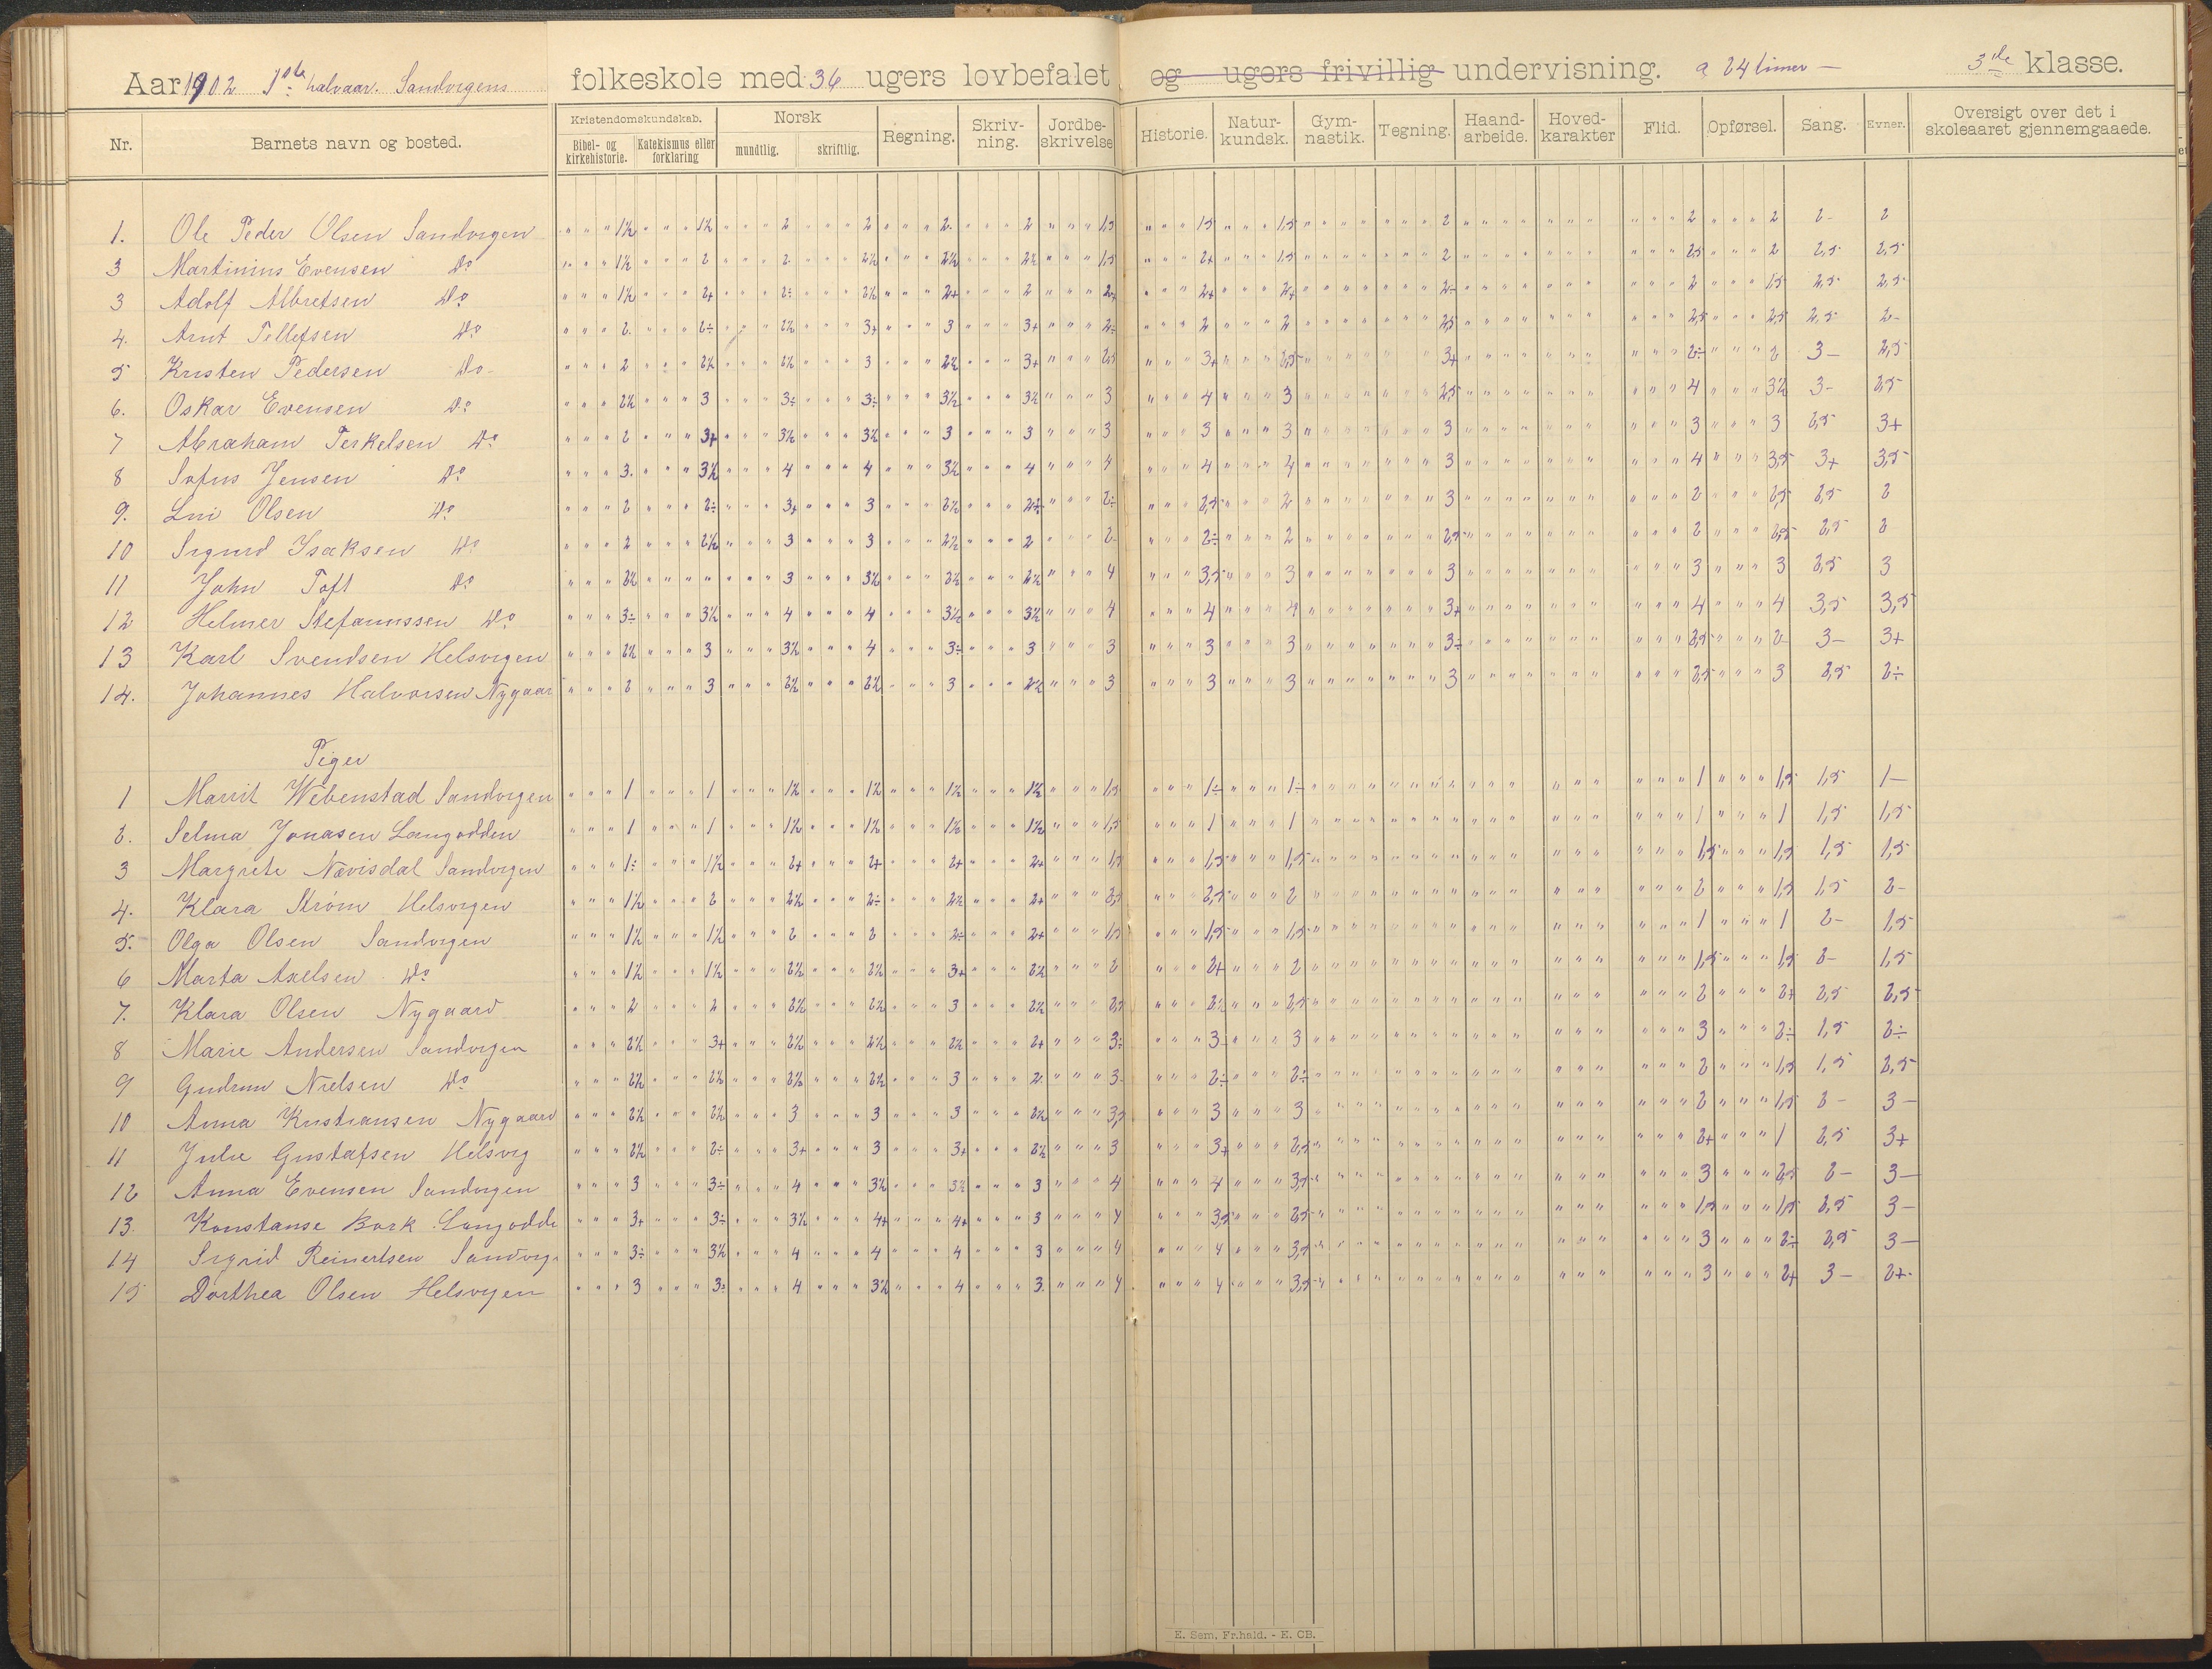 Aar 1902 1ste halvaar. Sandvigens folkeskole med 36 ugers lovbefalet og ugers frivillig undervisning. a 24 timer — 3die klasse.
Nr. Barnets navn og bosted. Kristendomskundskab. Bibel- og kirkehistorie. Katekismus eller forklaring Norsk mundtlig. skriftlig. Regning. Skrivning. Jordbeskrivelse Historie. Naturkundsk. Gymnastik. Tegning. Haandarbeide. Hovedkarakter Flid. Opførsel. Sang. Evner. Oversigt over det i skoleaaret gjennemgaaede.
1. Ole Peder Olsen Sandvigen " " " 1½ " " " 1½ " " " 2 " " " 2 " " " 2 " " " 2 " " " 1,5 " " " 1,5 " " " 1,5 " " " " " " " 2 " " " " " " " " " " 2 " " " 2 2- 2
3 Martinius Evensen Do " " " 1½ " " " 2 " " " 2 " " " 2½ " " " 2½ " " " 2½ " " " 1,5 " " " 2+ " " " 1,5 " " " " " " " 2 " " " " " " " " " " 2,5 " " " 2 2,5 2,5
3 Adolf Albretsen Do " " " 1½ " " " 2+ " " " 2÷ " " " 2½ " " " 2+ " " " 2 " " " 2+ " " " 2+ " " " 2+ " " " " " " " 2÷ " " " " " " " " " " 2 " " " 1,5 2,5 2,5
4. Arnt Tellefsen Do " " " 2 " " " 2÷ " " " 2½ " " " 3+ " " " 3 " " " 3+ " " " 2÷ " " " 2 " " " 2 " " " " " " " 2,5 " " " " " " " " " " 2,5 " " " 2,5 2,5 2-
5 Kristen Pedersen Do " " " 2 " " " 2½ " " " 2½ " " " 3 " " " 2½ " " " 3+ " " " 2,5 " " " 3+ " " " 2,5 " " " " " " 3+ " " " " " " " " " " 2÷ " " " 2 3- 2,5
6. Oskar Evensen Do " " " 2½ " " " 3 " " " 3÷ " " " 3÷ " " " 3½ " " " 3½ " " " 3 " " " 4 " " " 3 " " " " " " " 2,5 " " " " " " " " " " 4 " " " 3½ 3- 2,5
7 Abraham Terkelsen Do " " " 2 " " " 3+ " " " 3½ " " " 3½ " " " 3 " " " 3 " " " 3 " " " 3 " " " 3 " " " " " " " 3 " " " " " " " " " " 3 " " " 3 2,5 3+
8 Sofus Jensen Do " " " 3 " " " 3½ " " " 4 " " " 4 " " " 3½ " " " 4 " " " 4 " " " 4 " " " 4 " " " " " " " 3 " " " " " " " " " " 4 " " " 3,5 3+ 3,5
9. Lui Olsen Do " " " 2 " " " 2÷ " " " 3+ " " " 3 " " " 2½ " " " 2÷ " " " 2÷ " " " 2,5 " " " 2 " " " " " " " 3 " " " " " " " " " " 2 " " " 2,5 2,5 2
10 Sigurd Isaksen Do " " " 2 " " " 2½ " " " 3 " " " 3 " " " 2½ " " " 2 " " " 2 " " " 2÷ " " " 2 " " " " " " " 2,5 " " " " " " " " " " 2 " " " 2,5 2,5 2
11 John Toft Do " " " 2½ " " " " " " " 3 " " " 3½ " " " 2½ " " " 2½ " " " 4 " " " 3,5 " " " 3 " " " " " " " 3 " " " " " " " " " " 3 " " " 3 2,5 3
12 Helmer Stefanussen Do " " " 3÷ " " " 3½ " " " 4 " " " 4 " " " 3½ " " " 3½ " " " 4 " " " 4 " " " 4 " " " " " " " 3+ " " " " " " " " " " 4 " " " 4 3,5 3,5
13 Karl Svendsen Helsvigen " " " 2½ " " " 3 " " " 3½ " " " 4 " " " 3÷ " " " 3 " " " 3 " " " 3 " " " 3 " " " " " " " 3÷ " " " " " " " " " " 2,5 " " " 2 3- 3+
14. Johannes Halvorsen Nygaar " " " 2 " " " 3 " " " 2½ " " " 2½ " " " 3 " " " 2½ " " " 3 " " " 3 " " " 3 " " " " " " " 3 " " " " " " " " " " 2,5 " " " 3 2,5 2÷
Piger
1 Marit Webenstad Sandvigen " " " 1 " " " 1 " " " 1½ " " " 1½ " " " 1½ " " " 1½ " " " 1,5 " " " 1÷ " " " 1÷ " " " " " " " " " " " " " " " " " " 1 " " " 1,5 1,5 1-
2. Selma Jonasen Langodden " " " 1 " " " 1 " " " 1½ " " " 1½ " " " 1½ " " " 1½ " " " 1,5 " " " 1 " " " 1 " " " " " " " " " " " " " " " " " " 1 " " " 1 1,5 1,5
3 Margrete Nævisdal Sandvigen " " " 1÷ " " " 1½ " " " 2+ " " " 2+ " " " 2+ " " " 2+ " " " 1,5 " " " 1,5 " " " 1,5 " " " " " " " " " " " " " " " " " " 1,5 " " " 1,5 1,5 1,5
4. Klara Strøm Helsvigen " " " 1½ " " " 2 " " " 2½ " " " 2÷ " " " 2½ " " " 2+ " " " 2,5 " " " 2,5 " " " 2 " " " " " " " " " " " " " " " " " " 2 " " " 1,5 1,5 2-
5. Olga Olsen Sandvigen " " " 1½ " " " 1½ " " " 2 " " " 2 " " " 2÷ " " " 2+ " " " 1,5 " " " 1,5 " " " 1,5 " " " " " " " " " " " " " " " " " " 1 " " " 1 2- 1,5
6 Marta Axelsen Do " " " 1½ " " " 1½ " " " 2½ " " " 2½ " " " 3+ " " " 2½ " " " 2 " " " 2+ " " " 2 " " " " " " " " " " " " " " " " " " 1,5 " " " 1,5 2- 1,5
7. Klara Olsen Nygaard " " " 2 " " " 2 " " " 2½ " " " 2½ " " " 3 " " " 2½ " " " 2,5 " " " 2½ " " " 2,5 " " " " " " " " " " " " " " " " " " 2 " " " 2+ 2,5 2,5
8 Marie Andersen Sandvigen " " " 2½ " " " 3+ " " " 2½ " " " 2½ " " " 2½ " " " 2+ " " " 3÷ " " " 3 " " " 3 " " " " " " " " " " " " " " " " " " 3 " " " 2÷ 1,5 2÷
9 Gudrun Nielsen Do " " " 2½ " " " 2½ " " " 2½ " " " 2½ " " " 3 " " " 2 " " " 3 " " " 2÷ " " " 2÷ " " " " " " " " " " " " " " " " " " 2 " " " 1,5 1,5 2,5
10 Anna Kristiansen Nygaard " " " 2½ " " " 2½ " " " 3 " " " 3 " " " 3 " " " 2½ " " " 3,5 " " " 3 " " " 3 " " " " " " " " " " " " " " " " " " 2 " " " 1,5 2- 3-
11 Julie Gustafsen Helsvig " " " 2½ " " " 2÷ " " " 3+ " " " 3 " " " 3+ " " " 2½ " " " 3 " " " 3+ " " " 2,5 " " " " " " " " " " " " " " " " " " 2+ " " " 1 2,5 3+
12 Anna Evensen Sandvigen " " " 3 " " " 3÷ " " " 4 " " " 3½ " " " 3½ " " " 3 " " " 4 " " " 4 " " " 3,5 " " " " " " " " " " " " " " " " " " 3 " " " 2,5 2- 3-
13. Konstanse Bork Langodde " " " 3+ " " " 3÷ " " " 3½ " " " 4+ " " " 4+ " " " 3 " " " 4 " " " 3,5 " " " 2,5 " " " " " " " " " " " " " " " " " " 1,5 " " " 1,5 2,5 3-
14 Sigrid Reinertsen Sandvig " " " 3÷ " " " 3½ " " " 4 " " " 4 " " " 4 " " " 3 " " " 4 " " " 4 " " " 3,5 " " " " " " " " " " " " " " " " " " 3 " " " 2÷ 2,5 3-
15 Dorthea Olsen Helsvigen " " " 3 " " " 3÷ " " " 4 " " " 3½ " " " 4 " " " 3 " " " 4 " " " 4 " " " 3,5 " " " " " " " " " " " " " " " " " " 3 " " " 2+ 3- 2+
E. Sem, Fr.hald. - E. CB.